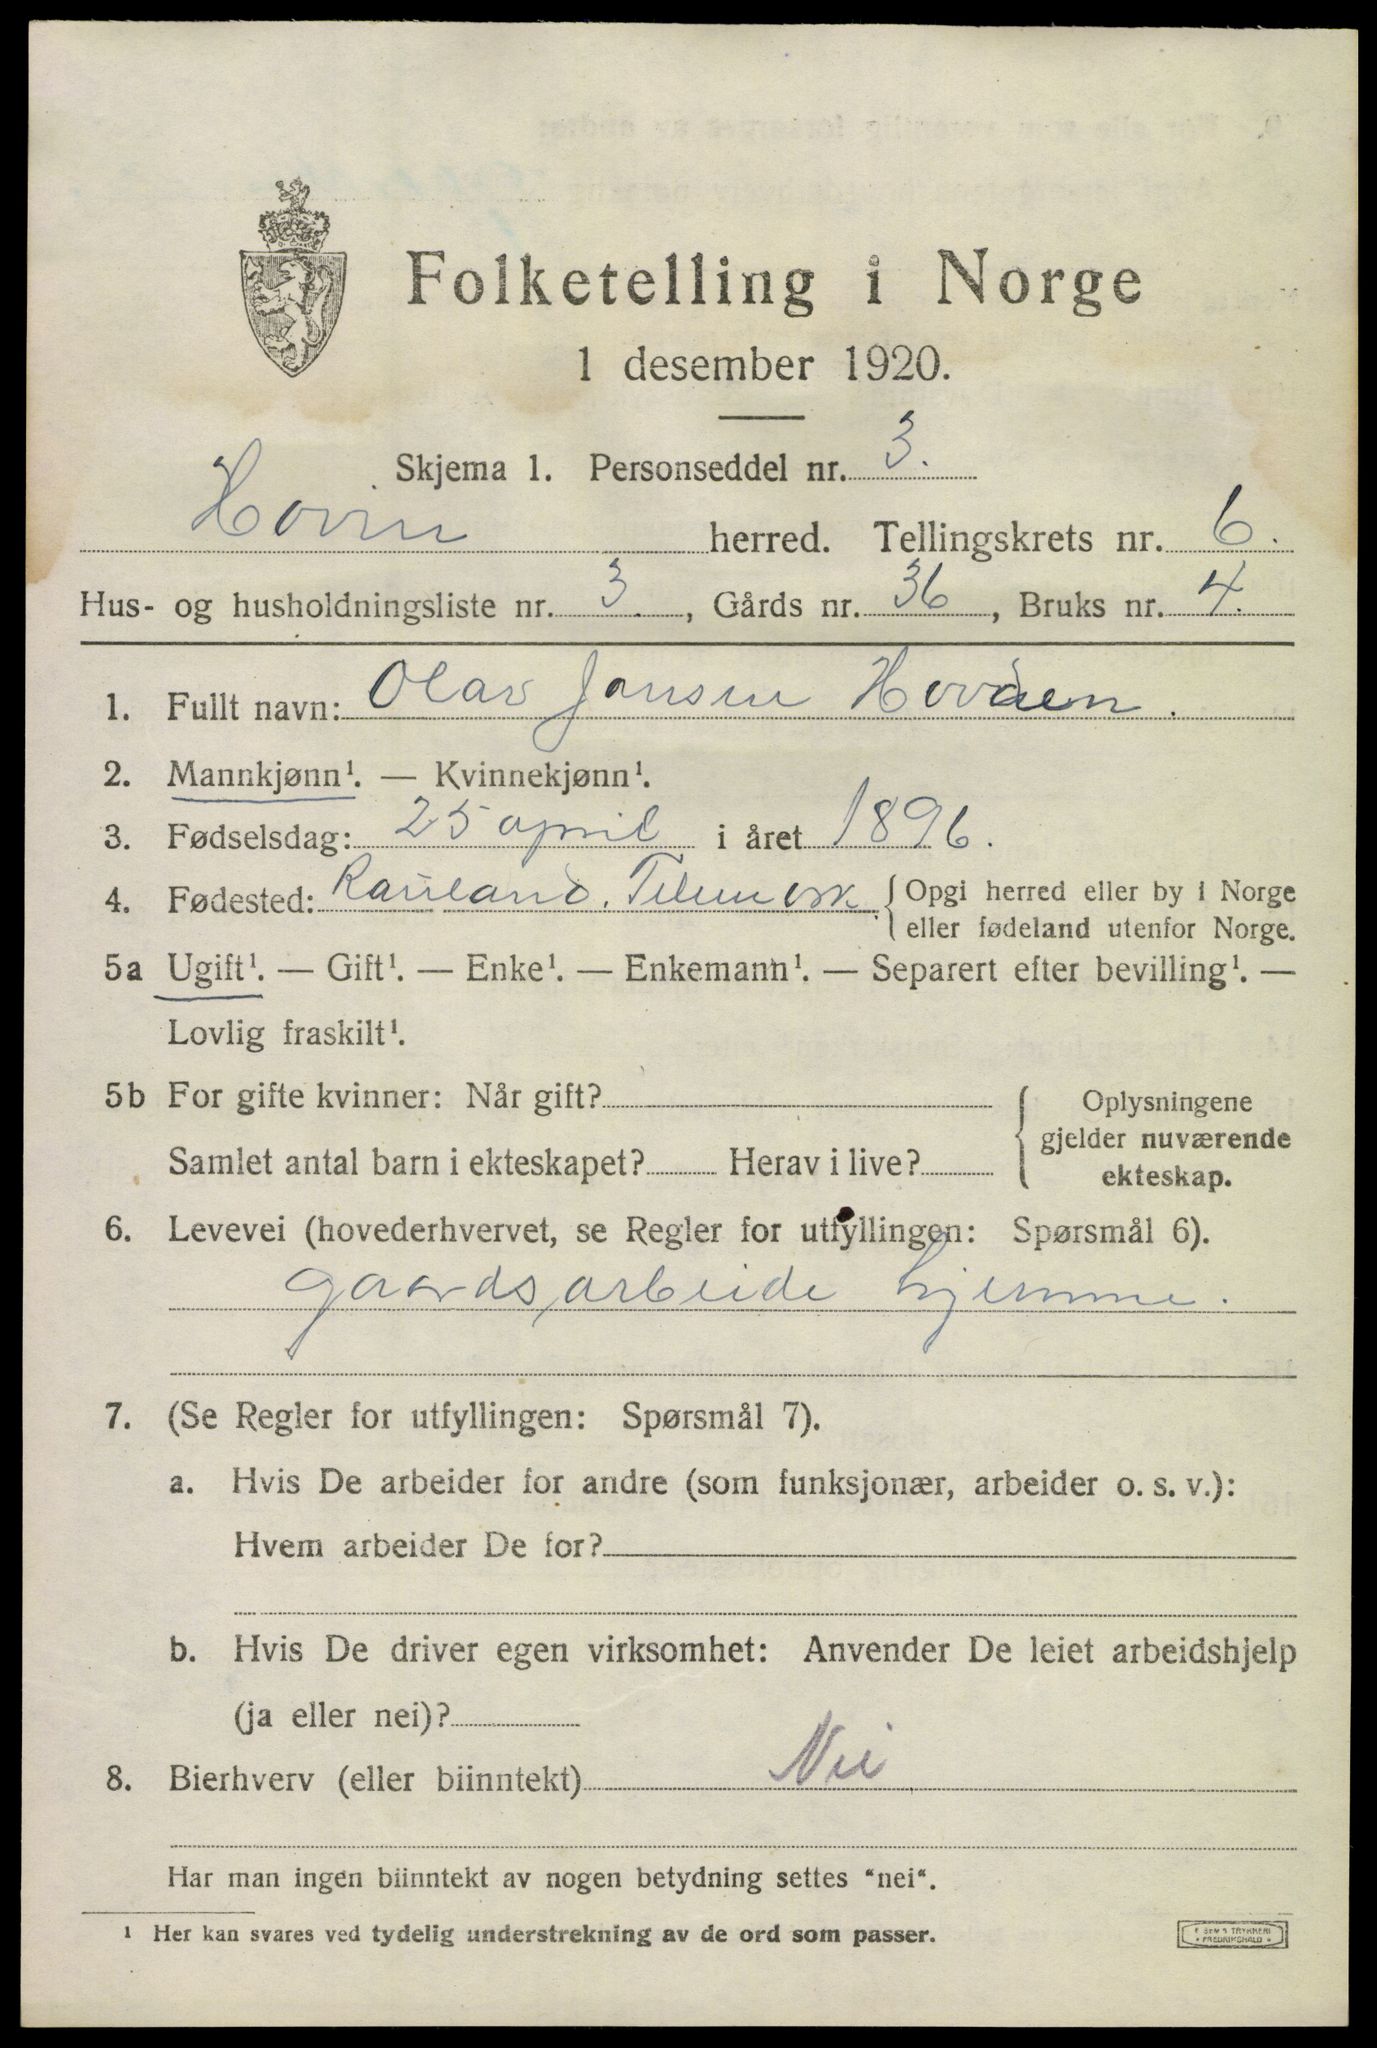 Folketelling i Norge
1 desember 1920.
Skjema 1. Personseddel nr. 3.
Hovin herred. Tellingskrets nr. 6.
Hus- og husholdningsliste nr. 3., Gårds nr. 36, Bruks nr. 4.
1. Fullt navn: Olav Jonsen Hovden.
2. Mannkjønn¹. — Kvinnekjønn¹.
3. Fødselsdag: 25 april i året 1896.
4. Fødested: Rauland. Telemark { Opgi herred eller by i Norge
eller fødeland utenfor Norge.
5a Ugift¹. — Gift¹. — Enke¹. — Enkemann¹. — Separert efter bevilling¹. —
Lovlig fraskilt¹.
5b For gifte kvinner: Når gift? { Oplysningene
gjelder nuværende
Samlet antal barn i ekteskapet? Herav i live?
ekteskap.
6. Levevei (hovederhvervet, se Regler for utfyllingen: Spørsmål 6).
gaardsarbeide hjemme.
7. (Se Regler for utfyllingen: Spørsmål 7).
a. Hvis De arbeider for andre (som funksjonær, arbeider o. s. v.):
Hvem arbeider De for?
b. Hvis De driver egen virksomhet: Anvender De leiet arbeidshjelp
(ja eller nei)?
8. Bierhverv (eller biinntekt) Nei
Har man ingen biinntekt av nogen betydning settes “nei“.
¹ Her kan svares ved tydelig understrekning av de ord som passer.
TRYKKERI
FREDRIKSHALD